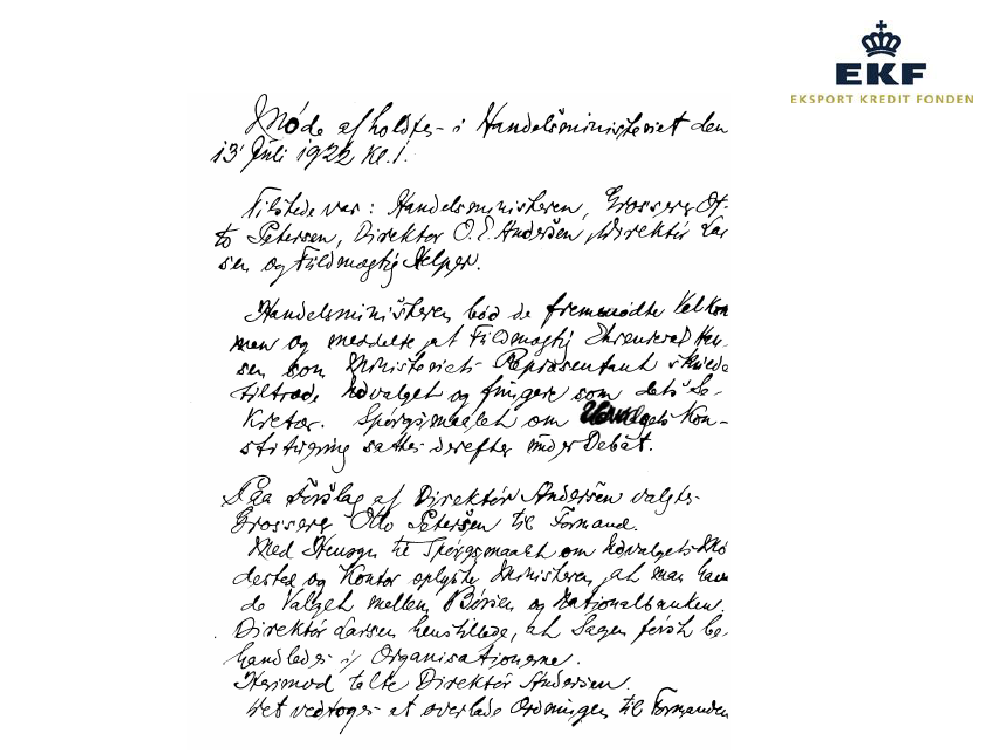 EKF
EKSPORT KREDIT FONDEN
Møde afholdtes i Handelsministeriet den
13' Juli 1922 Kl. 1.
Tilstede var: Handelsministeren, Grosserer Ot-
to Petersen, Direktør O. E. Andersen, Direktør Lar
sen og Fuldmægtig
Handelsministeren bød de fremmødte Velkom
men og meddelte at Fuldmægtig Ehrenreich Han-
sen som Ministeriets Repræsentant skulde
tiltræde Udvalget og fungere som dets Se-
kretær. Spørgsmaalet om Udvalgets Kon-
stituering sattes derefter under Debat.
Paa Forslag af Direktør Andersen valgtes
Grosserer Otto Petersen til Formand.
Med Hensyn til Spørgsmaalet om Udvalgets Mø
desteder og Kontor oplyste Ministeren, at man havn
de Valget mellem Børsen og Nationalbanken.
Direktør Larsen henstillede, at Sagen først be-
handledes i Organisationerne.
Herimod talte Direktør Andersen.
Det vedtoges at overlade Ordningen til Formanden